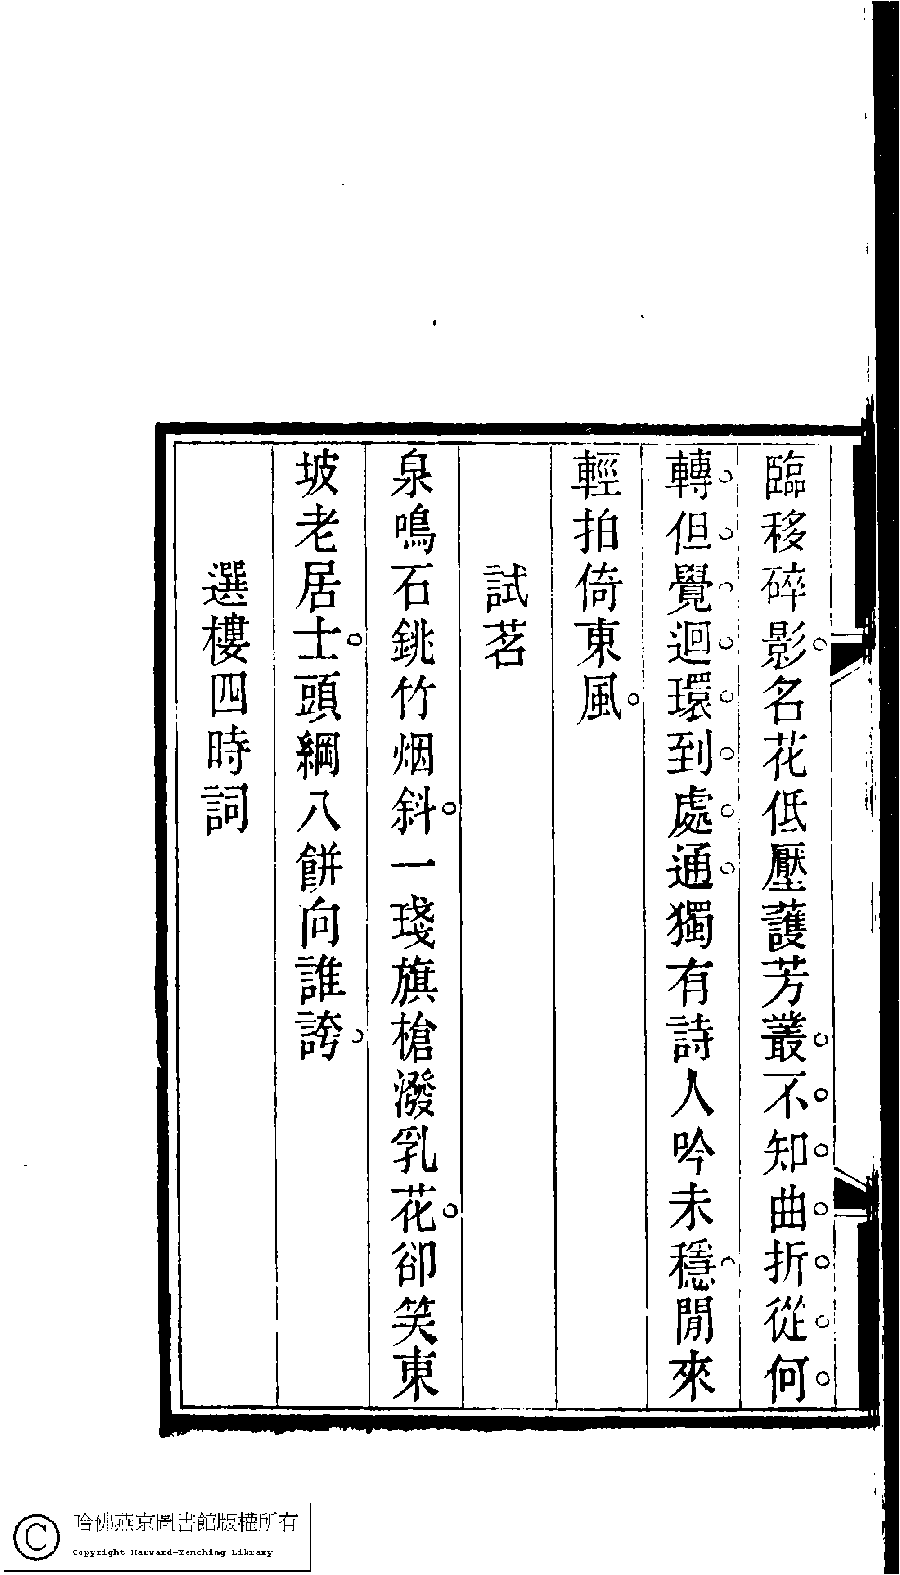 臨移碎影名花低壓護芳叢不知曲折從何
轉但覺迴環到處通獨有詩人吟未穩閒來
輕拍倚東風
試茗
泉鳴石銚竹烟斜一琖旗槍潑乳花卻笑東
坡老居士頭綱八餅向誰誇
選樓四時詞
哈佛燕京圖書館版權所有
Copyright Harvard-Yenching Library